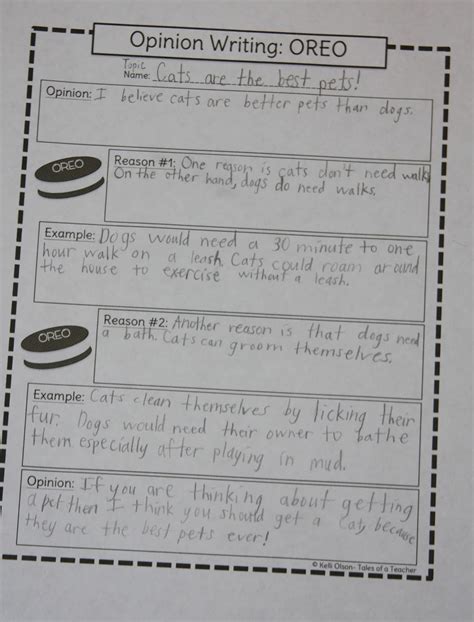 Opinion Writing: OREO
Topic
Name: Cats are the best pets!
Opinion: I believe cats are better pets than dogs.
OREO
Reason #1: One reason is cats don't need walks
On the other hand, dogs do need walks.
Example: Dogs would need a 30 minute to one
hour walk on a leash. Cats could roam around
the house to exercise without a leash.
OREO
Reason #2: Another reason is that dogs need
a bath. Cats can groom themselves.
Example: Cats clean themselves by licking their
fur. Dogs would need their owner to bathe
them especially after playing in mud.
Opinion: If you are thinking about getting
a pet then I think you should get a cat, because
they are the best pets ever!
© Kelli Olson- Tales of a Teacher